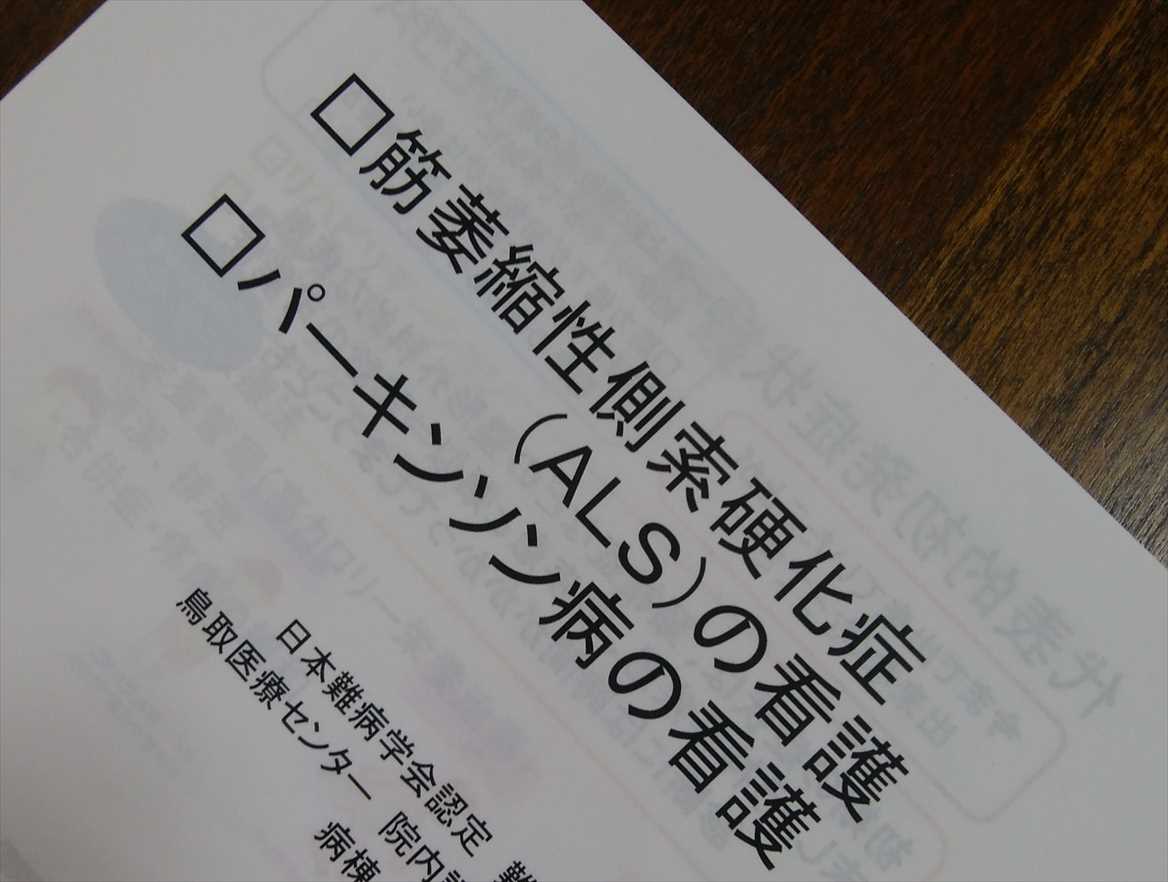 □筋萎縮性側索硬化症
（ALS）の看護
□パーキンソン病の看護
日本難病学会認定
鳥取医療センター 院内
病棟